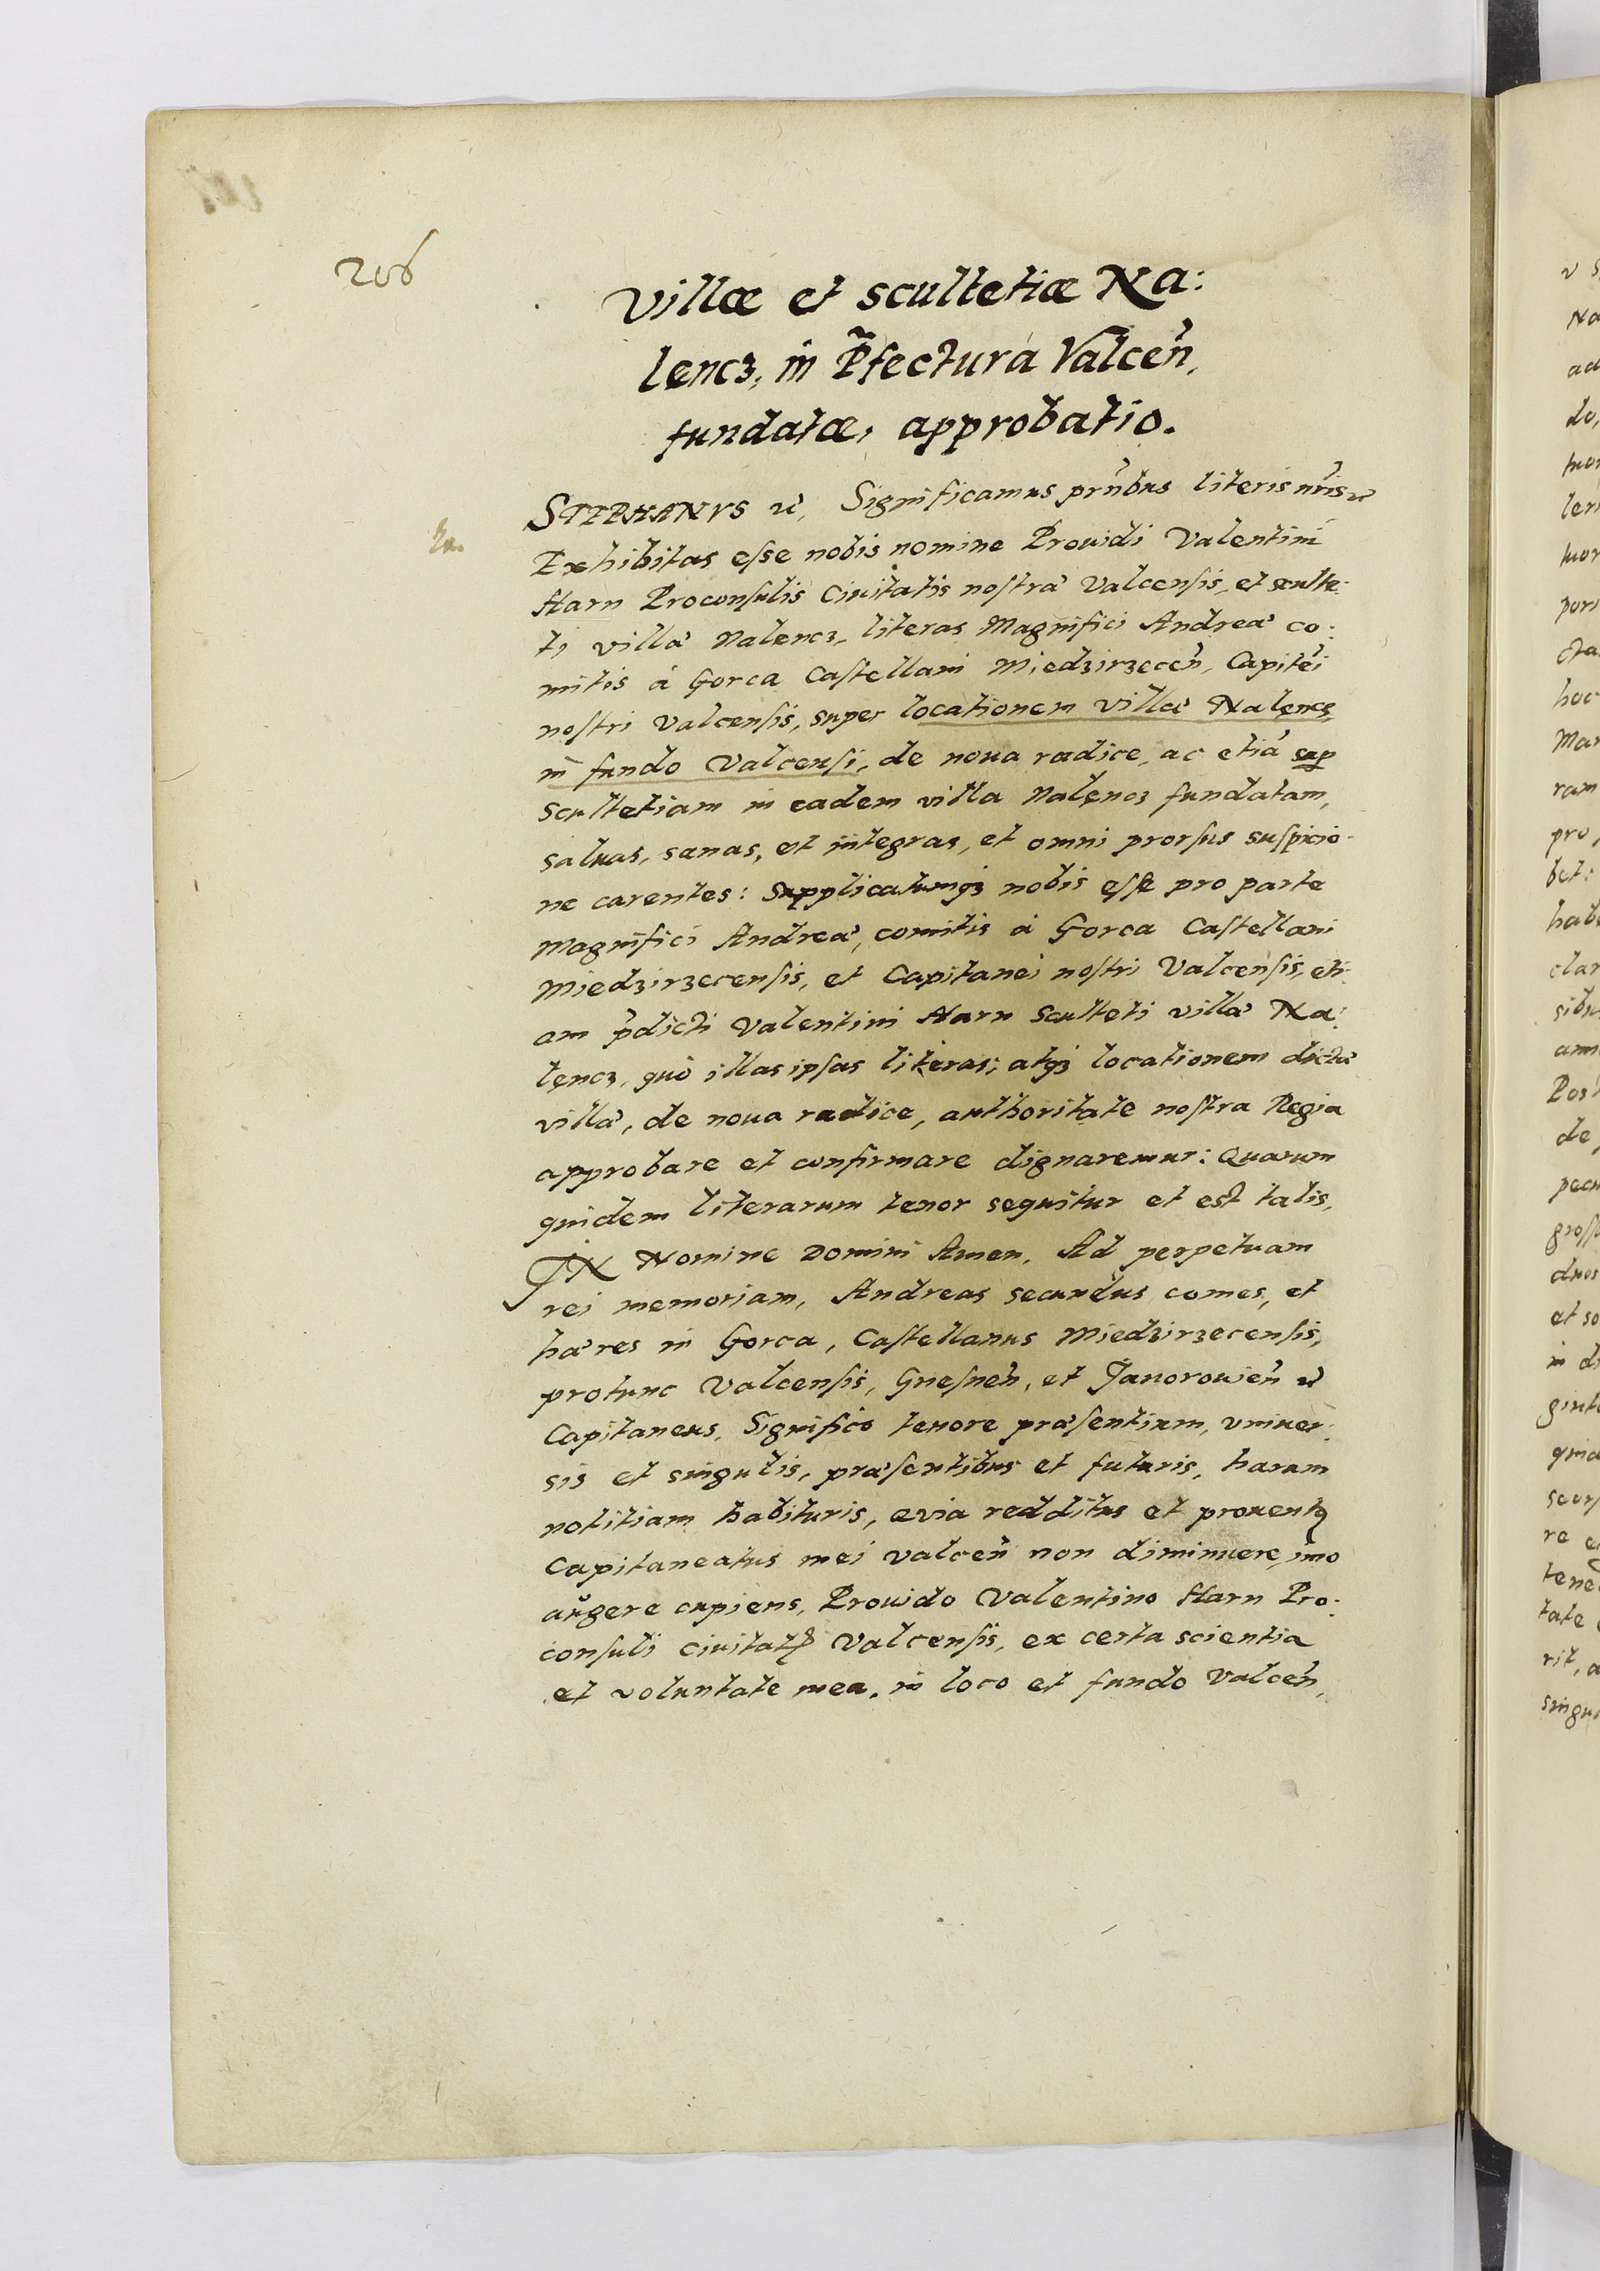 206
Villæ et scultetiæ Na:
lencz, in P̃fectura Valcen̄,
fundatæ, approbatio.
STEPHANVS &c, Significamus pn̄tibus literis nr̄is &c
Exhibitas esse nobis nomine Prouidi Valentini
Harn Proconsulis Ciuitatis nostræ Valcensis, et sculte:
ti villæ Nalencz, literas Magnifici Andreæ co:
mitis à Gorca Castellani Miedzirzecen̄, Capitei
nostri Valcensis, super locationem villæ Nalęncz
in fundo Valcensi, de noua radice, ac etiā sup
Scultetiam in eadem villa Nalęncz fundatam,
saluas, sanas, et integras, et omni prorsus suspicio-
ne carentes: Supplicatumq3 nobis esse pro parte
Magnifici Andreæ, comitis à Gorca Castellani
Miedzirzecensis, et Capitanei nostri Valcensis, eti-
am p̃dicti Valentini Harn Sculteti villæ Na:
lęncz, quò illas ipsas literas; atq3 locationem dictæ
villæ, de noua radice, authoritate nostra Regia
approbare et confirmare dignaremur: Quarum
quidem literarum tenor sequitur et est talis,
IN Nomine Domini Amen, Ad perpetuam
rei memoriam, Andreas secundus comes, et
hæres in Gorca, Castellanus Miedzirzecensis,
protunc Valcensis, Gnesnen̄, et Jauorowien̄ &c
Capitaneus, Significo tenore præsentium, vniuer:
sis et singulis, præsentibus et futuris, harum
notitiam habituris, quia redditus et prouentus
Capitaneatus mei Valcen̄ non diminuere, imo
augere cupiens, Prouido Valentino Harn Pro:
consuli ciuitatis Valcensis, ex certa scientia
et voluntate mea, in loco et fundo Valcen̄,